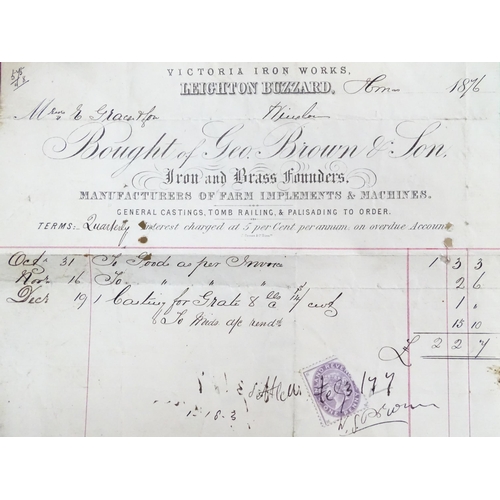 VICTORIA IRON WORKS,
LEIGHTON BUZZARD, 1876
E Grace & Son Winslow
Bought of Geo. Brown & Son.
Iron and Brass Founders.
MANUFACTURERS OF FARM IMPLEMENTS & MACHINES.
GENERAL CASTINGS, TOMB RAILING, & PALISADING TO ORDER.
TERMS:- Quarterly Interest charged at 5 per Cent per annum, on overdue Accounts
Octr 31 To Goods as per Invoice 1 3 3
Novr 16 To " " " 2 6
Decr 19 1 Casting for Grate 8 lbs 1 "
To 15 10
£ 2 2 7
Settled Feb 3/77
Brown
1-18-3